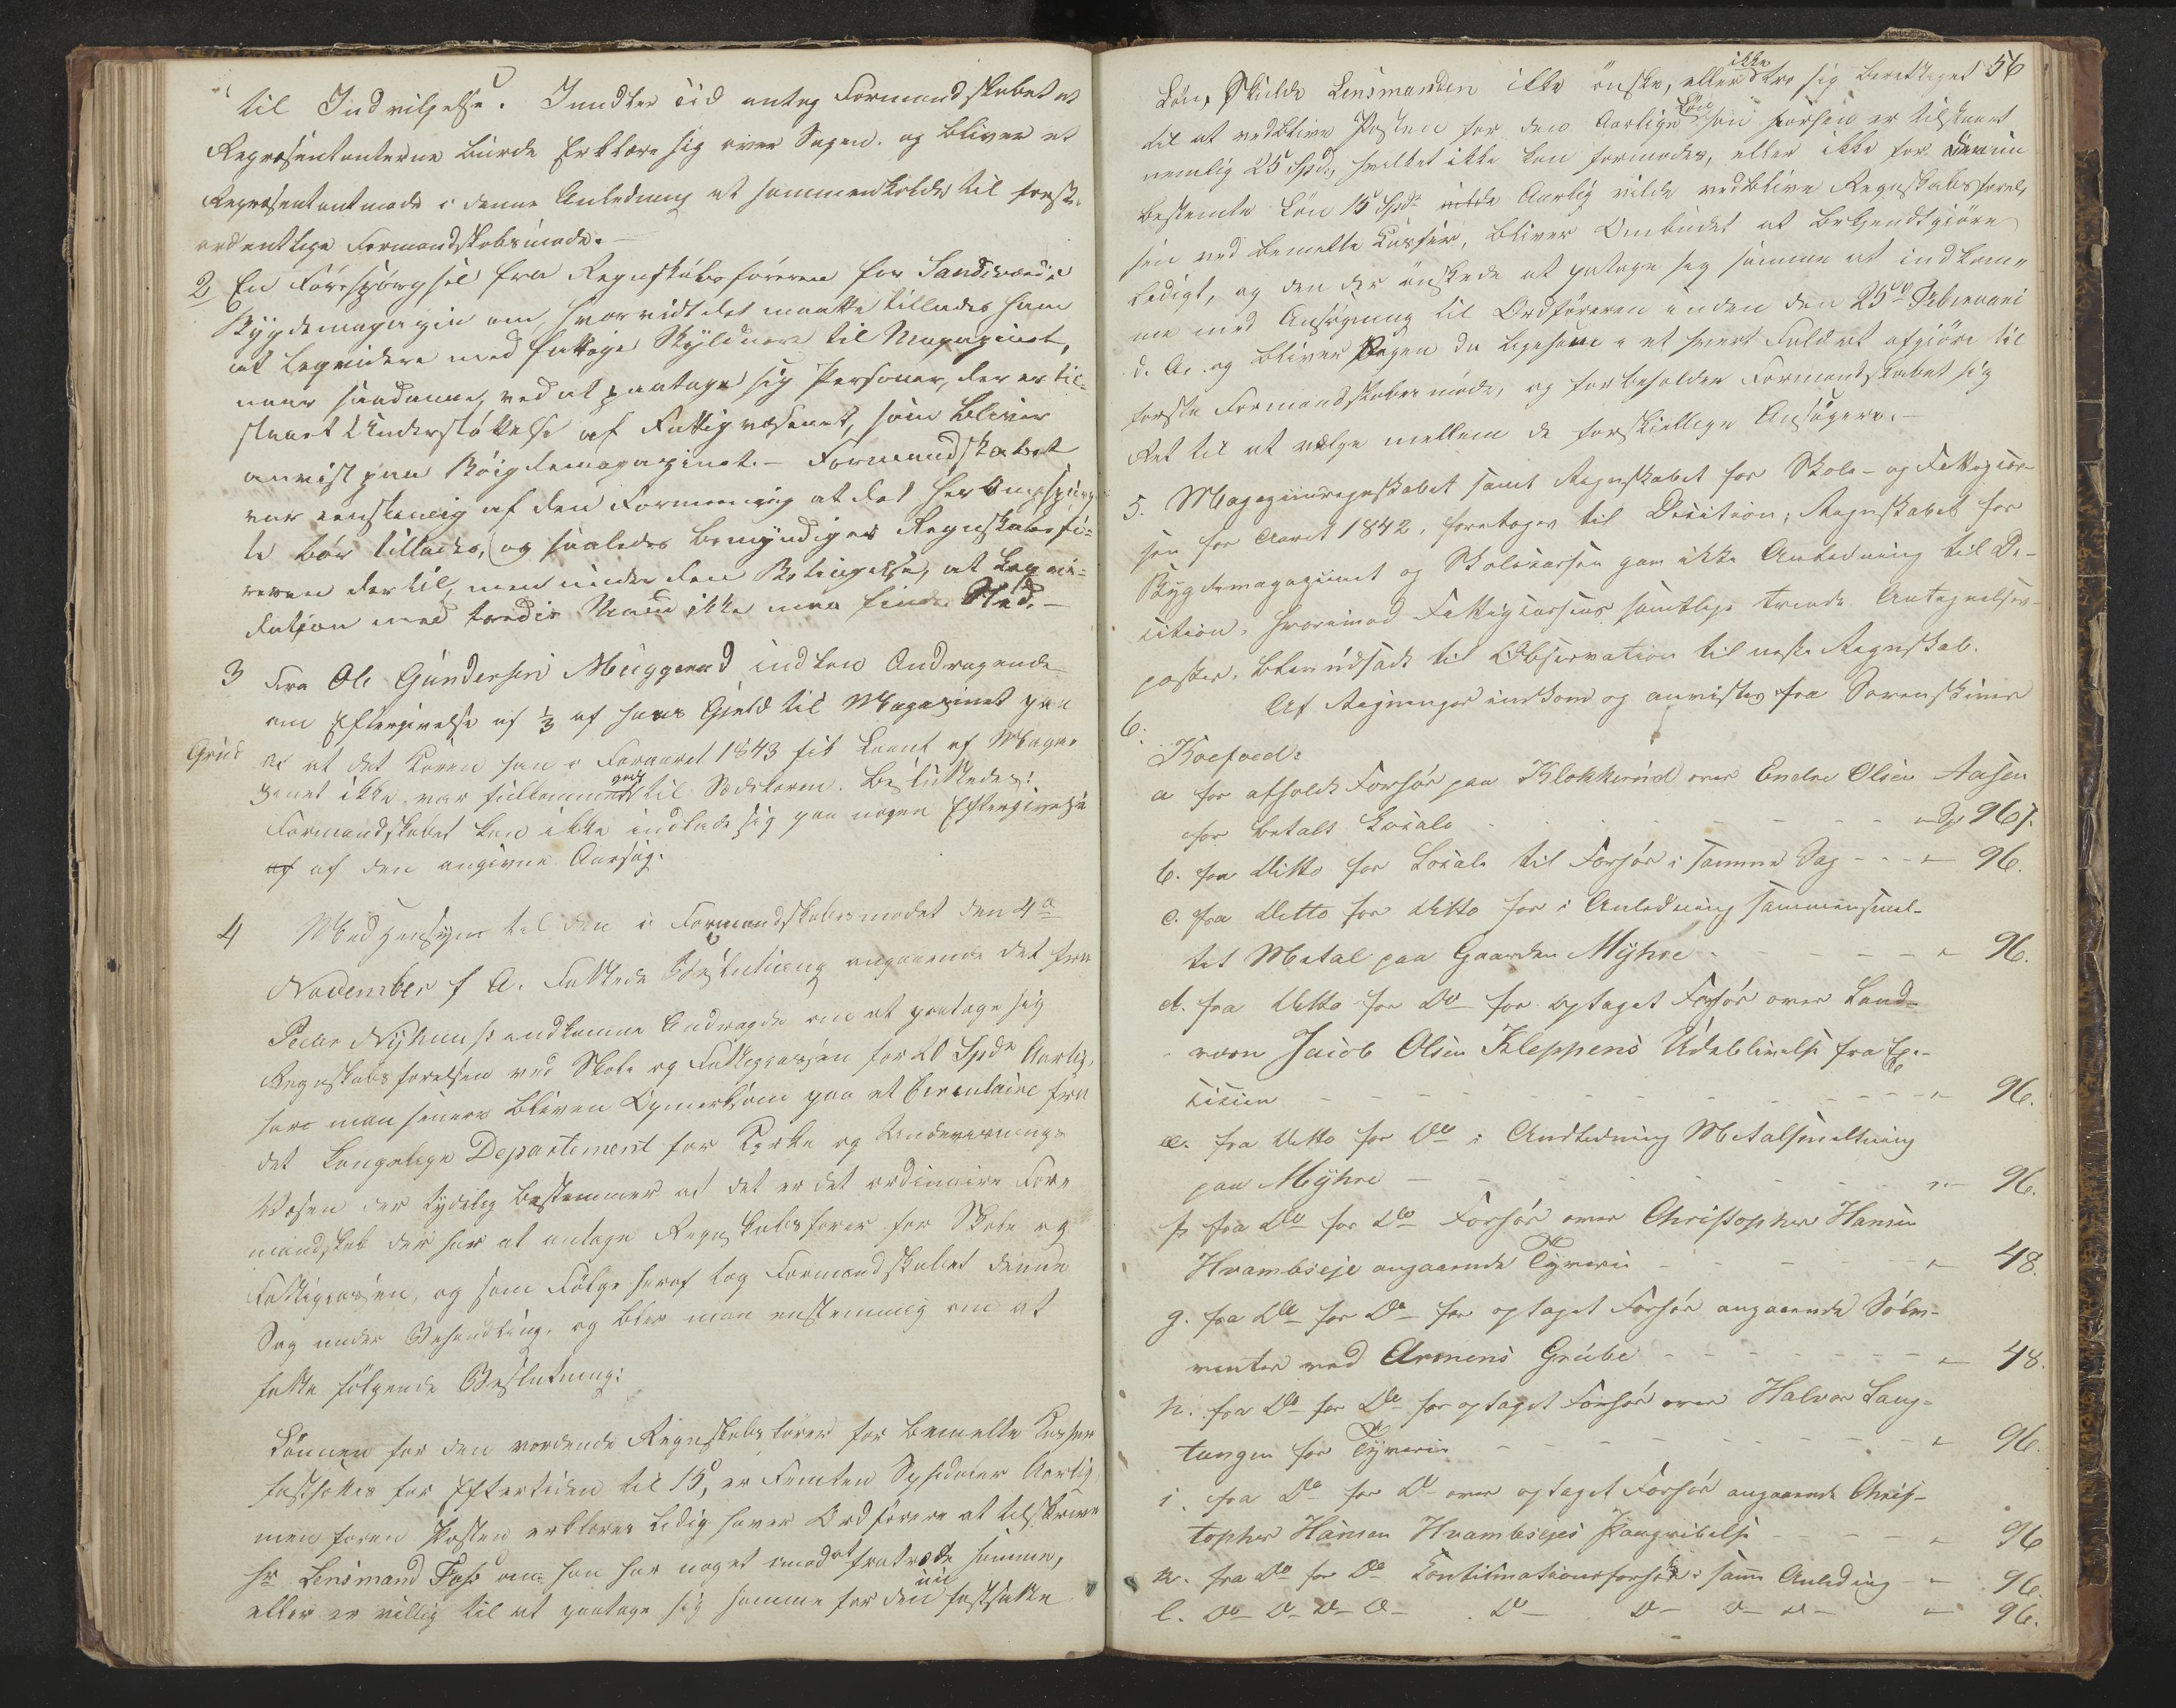 til Indvilgelse. Imidlertid antog Formandskabet at
Repræsentanterne burde erklære sig over Sagen. og bliver et
Repræsentantmøde i denne Anledning at sammenholde til første
ordentlige Formandskabsmøde.—
2 En Forespørgsel fra Regnskabsføreren for Sandsværds
Bygdemagazin om, hvorvidt det maatte tillades ham
at liqvidere med fattige Skyldnere til Magazinet,
naar saadanne, ved at paatage sig Personer, der er til-
staaet Understøttelse af Fattigvæsenet, som bliver
anvist paa Böigdemagazinet.— Formandskabet
var eenstemmig af den Formening at det her Omspurg-
te bör tillades, og saaledes bemyndiges Regnskabsfö-
reren dertil, men under den Betingelse, at Liqvi-
dation med tredie Mand ikke maa finde Sted.—
3 Fra Ole Gundersen Muggerud indkom Andragende
om Eftergivelse af 1/3 af hans Gjeld til Magazinet paa
Grund af at det Korn han i Foraaret 1843 fik laant af Maga-
zinet ikke var fuldkommen godt til Sædekorn. Besluttedes:
Formandskabet kan ikke indlade sig paa nogen Eftergivelse
af af den angivne Aarsag.
4 Med Hensyn til den i Formandskabsmødet den 4de
November f A. fattede Beslutning angaaende det fra
Peder Nyhuus indkomne Andragende om at paatage sig
Regnskabsførelsen ved Skole og Fattigcassen for 20 Spd Aarlig,
har man senere bleven Opmerksom paa et Circulaire fra
det Kongelige Departement for Kirke og Underviisnings
Væsen der tydelig bestemmer at det er det ordinaire For-
mandskab der har at antage Regnskabsfører for Skole og
Fattigcassen, og som Fölge heraf tog Formandskabet denne
Sag under Behandling, og blev man eenstemmig om at
fatte følgende Beslutning:
Lønnen for den vordende Regnskabsfører for bemelte Kasser
fastsættes for Eftertiden til 15, er Femten Speciedaler Aarlig
men foren Posten erklæres ledig haver Ordförere at tilskrive
Hr Lensmand Foss om han har noget imod at fratræde samme,
eller er villig til at paatage sig samme for den nu fastsatte
56
Løn, Skulde Lensmanden ikke önske, eller ikke troe sig berettiget
til at vedblive Posten for den Aarlige Løn som forhen er tilstaaet
nemlig 25 Spd, hvilket ikke kan formodes, eller ikke for denne
bestemte Lön 15 Spd vilde Aarlig vilde vedblive Regnskabsførel-
sen ved bemelte Kasser, bliver Ombudet at bekjendtgjöre
ledigt, og den der önskede at paatage sig samme at indkom-
me med Ansögning til Ordføreren inden den 25de Februari
d. A. og bliver Sagen da ligesom i et hvert Fald at afgiöre til
første Formandskabsmøde, og forbeholder Formandskabet sig
Ret til at vælge mellem de forskiellige Ansögere.—
5. Magazinregnskabet samt Regnskabet for Skole- og Fattigcas-
sen for Aaret 1842, foretoges til Decision; Regnskabet for
Bygdemagazinet og Skolecassen gav ikke Anledning til De-
cision, hvorimod Fattigcassens samtlige trende Antegnelses-
poster, blev udsadt til Observation til neste Regnskab.
6. Af Regninger indkom og anvistes fra Sorenskriver
Koefoed:
a for afholdt Forhör paa Klokkerud over Endre Olsen Aasen
for betalt Locale - - - - - 96 s.
b. fra Ditto for Locale til Forhör i samme Sag - - - 96.
c. fra Ditto for Ditto for i Anledning sammensmel-
tet Metal paa Gaarden Myhre - - - - - 96.
d. fra Ditto for Do for optaget Forhör over Land-
værn Jacob Olsen Kleppens Udeblivelse fra Ex-
ercicien - - - - - 96.
e. fra Ditto for Do i Andledning Metalsmeltning
paa Myhre - - - - - 96.
f. fra Do for Do Forhör over Christopher Hansen
Hvambseje angaaende Tyveri - - - - - 48.
g. fra Do for Do for optaget Forhör angaaende Sölv-
venter ved Armens Grube - - - - - 48.
h. fra Do for Do for optaget Forhör over Halvor Lang-
tangen for Tyveri - - - - - 96.
i. fra Do for Do over optaget Forhör angaaende Chris-
topher Hansen Hvambsejes Paagribelse - - - - - 96
k. fra Do for Do Continuationsforhör i samme Anledning - 96.
l. Do Do Do Do Do Do Do Do - 96.